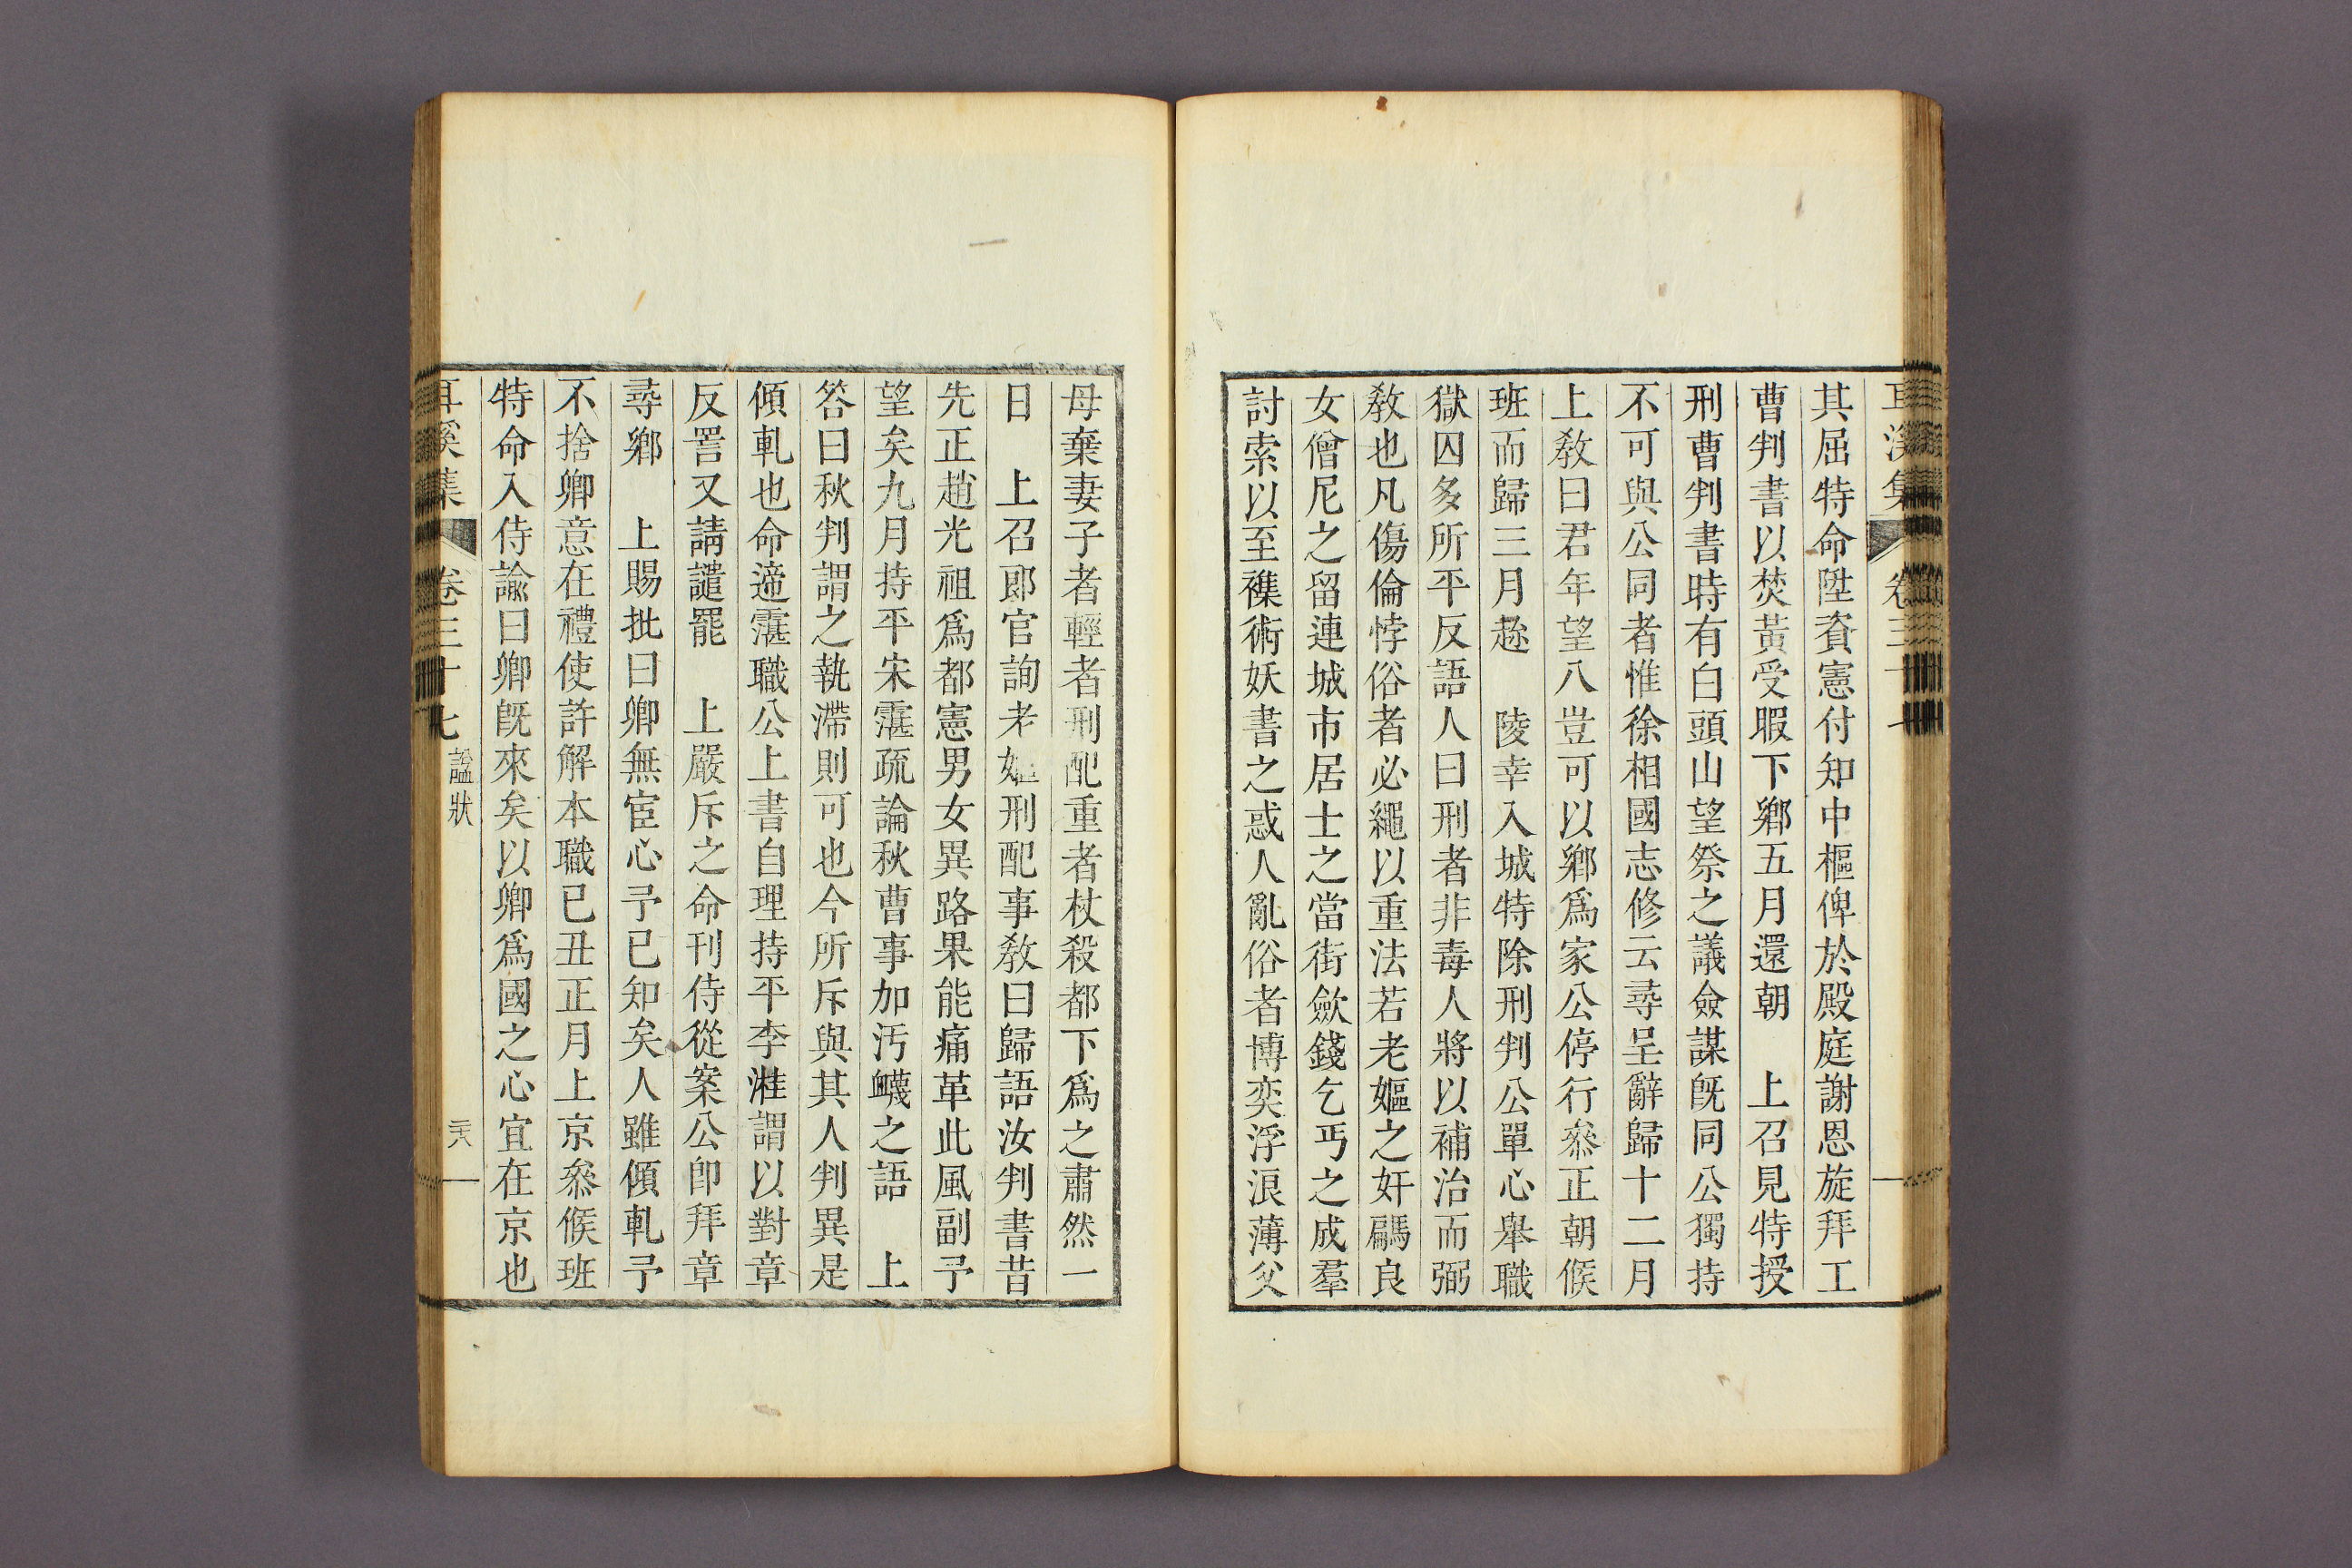 耳溪集 卷三十七
其屈特命陞資憲付知中樞俾於殿庭謝恩旋拜工
曹判書以焚黃受暇下鄉五月還朝　上召見特授
刑曹判書時有白頭山望祭之議僉謀旣同公獨持
不可與公同者惟徐相國志修云尋呈辭歸十二月
上敎曰君年望八豈可以鄉爲家公停行叅正朝候
班而歸三月趂　陵幸入城特除刑判公單心舉職
獄囚多所平反語人曰刑者非毒人將以補治而弼
敎也凡傷倫悖俗者必繩以重法若老嫗之奸騙良
女僧尼之留連城市居士之當街歛錢乞丐之成羣
討索以至襍術妖書之惑人亂俗者博奕浮浪薄父
母棄妻子者輕者刑配重者杖殺都下爲之肅然一
日　上召郞官詢老嫗刑配事敎曰歸語汝判書昔
先正趙光祖爲都憲男女異路果能痛革此風副予
望矣九月持平宋霮疏論秋曹事加汚衊之語　上
答曰秋判謂之執滯則可也今所斥與其人判異是
傾軋也命遞霮職公上書自理持平李漼謂以對章
反詈又請譴罷　上嚴斥之命刊侍從案公卽拜章
尋鄉　上賜批曰卿無宦心予已知矣人雖傾軋予
不捨卿意在禮使許解本職己丑正月上京叅候班
特命入侍諭曰卿旣來矣以卿爲國之心宜在京也
耳溪集 卷三十七 諡狀 二十八